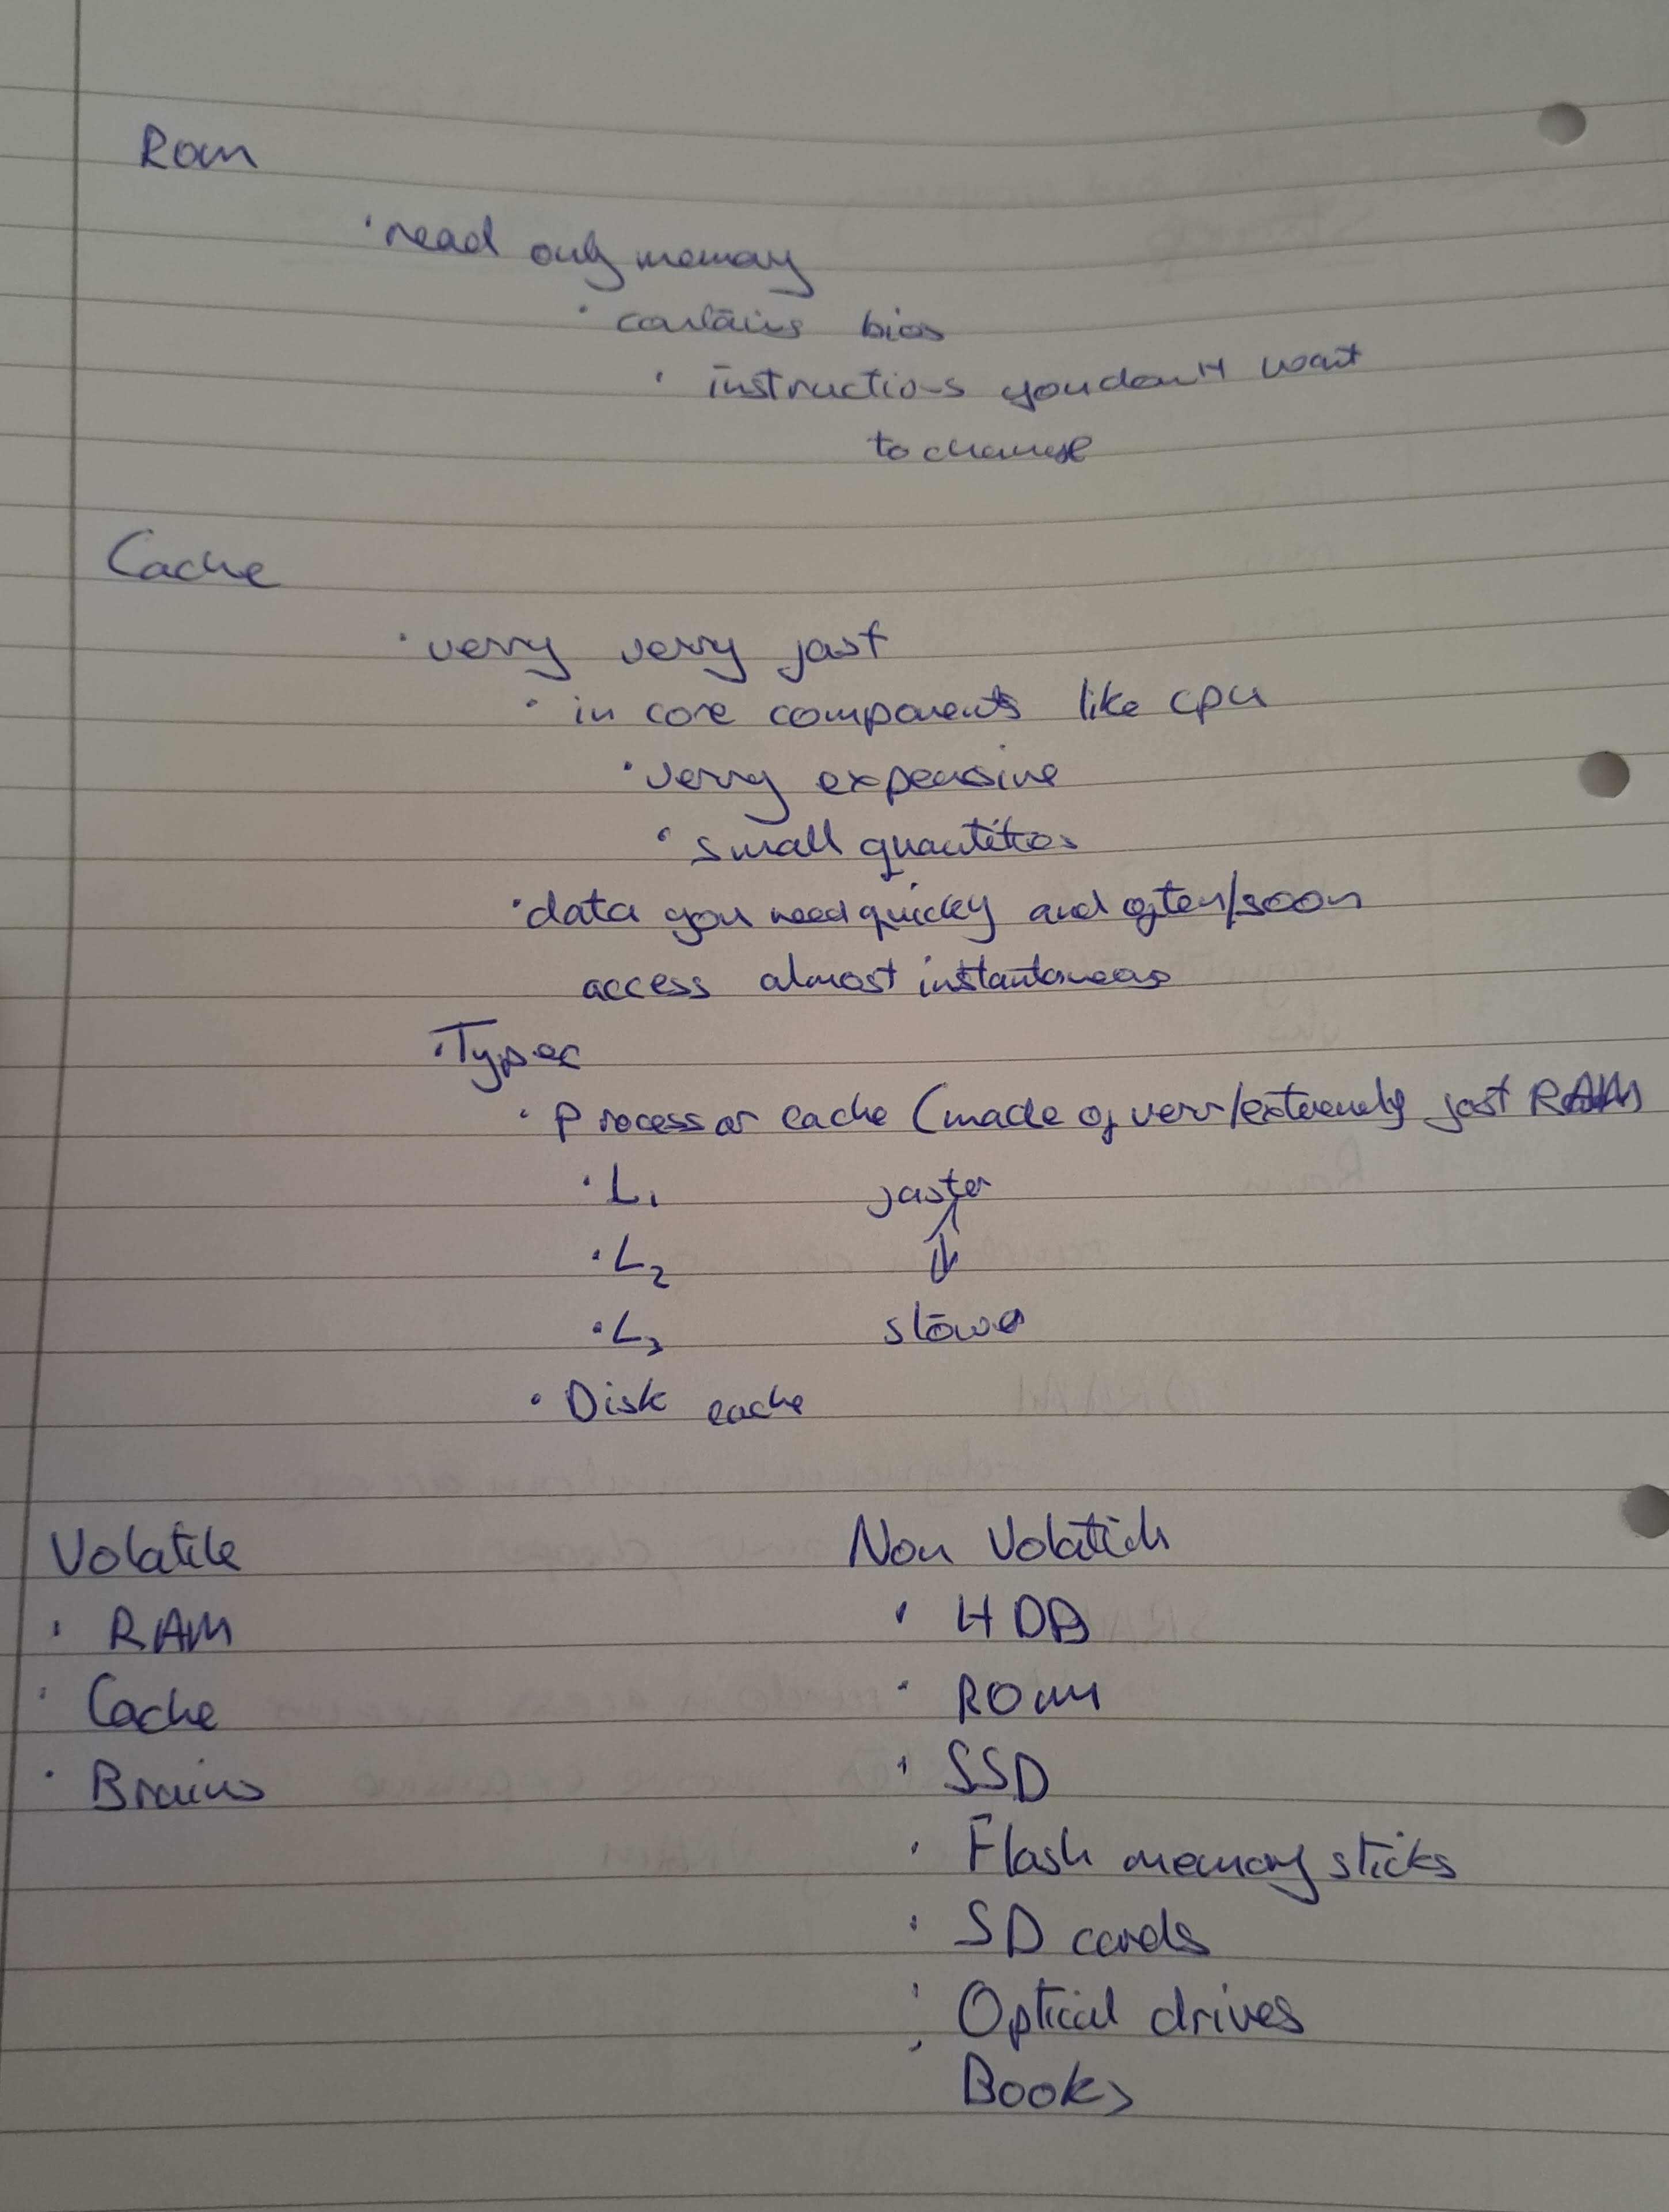 Rom
· read only memory
· contains bios
· instructions you don't want
to change
Cache
· verry verry fast
· in core components like cpu
· verry expensive
· small quantities
· data you need quickly and often/soon
access almost instantaneos
· Types
· Processor cache (made of verr/extremely fast RAM)
· L1 faster
· L2
· L3 slower
· Disk cache
Volatile Non Volatile
· RAM · HDD
· Cache · ROM
· Brains · SSD
· Flash memory sticks
· SD cards
· Optical drives
· Books